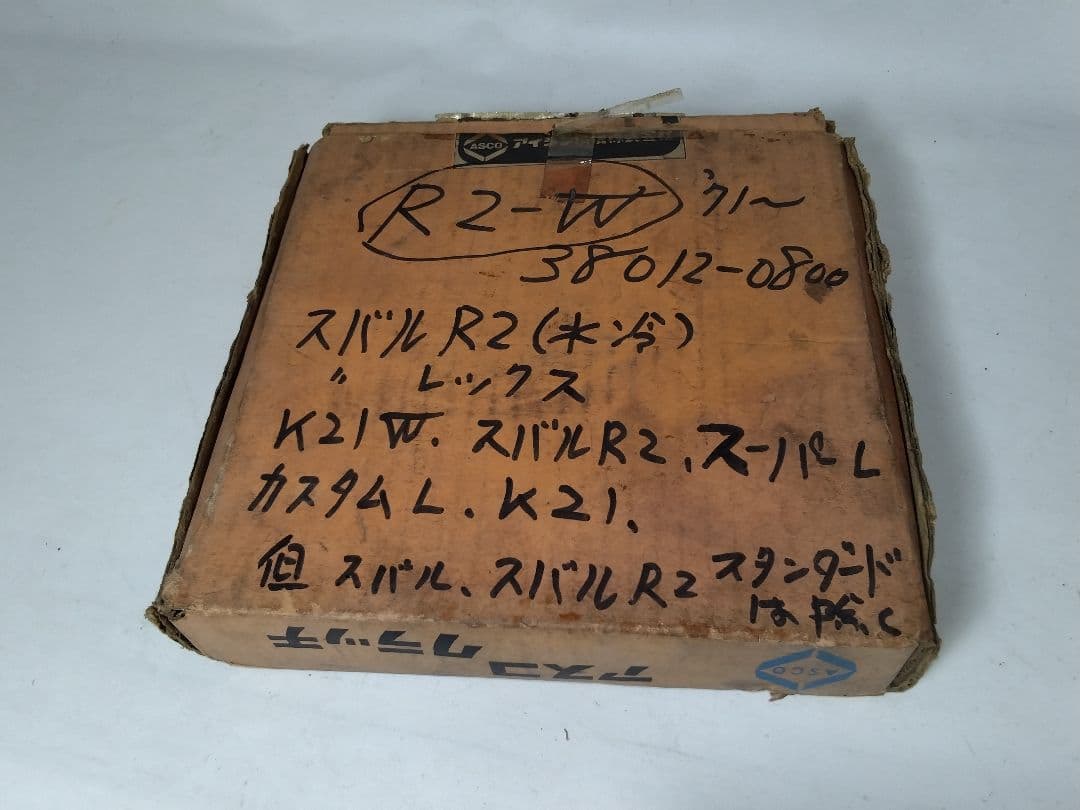 ASCO
R2-W '71~
38012-0800
スバルR2(水冷)
〃 レックス
K21W. スバルR2、スーパーL
カスタムL、K21、
但 スバル、スバルR2 スタンダード
は除く
アスコ
クラッチ
ASCO